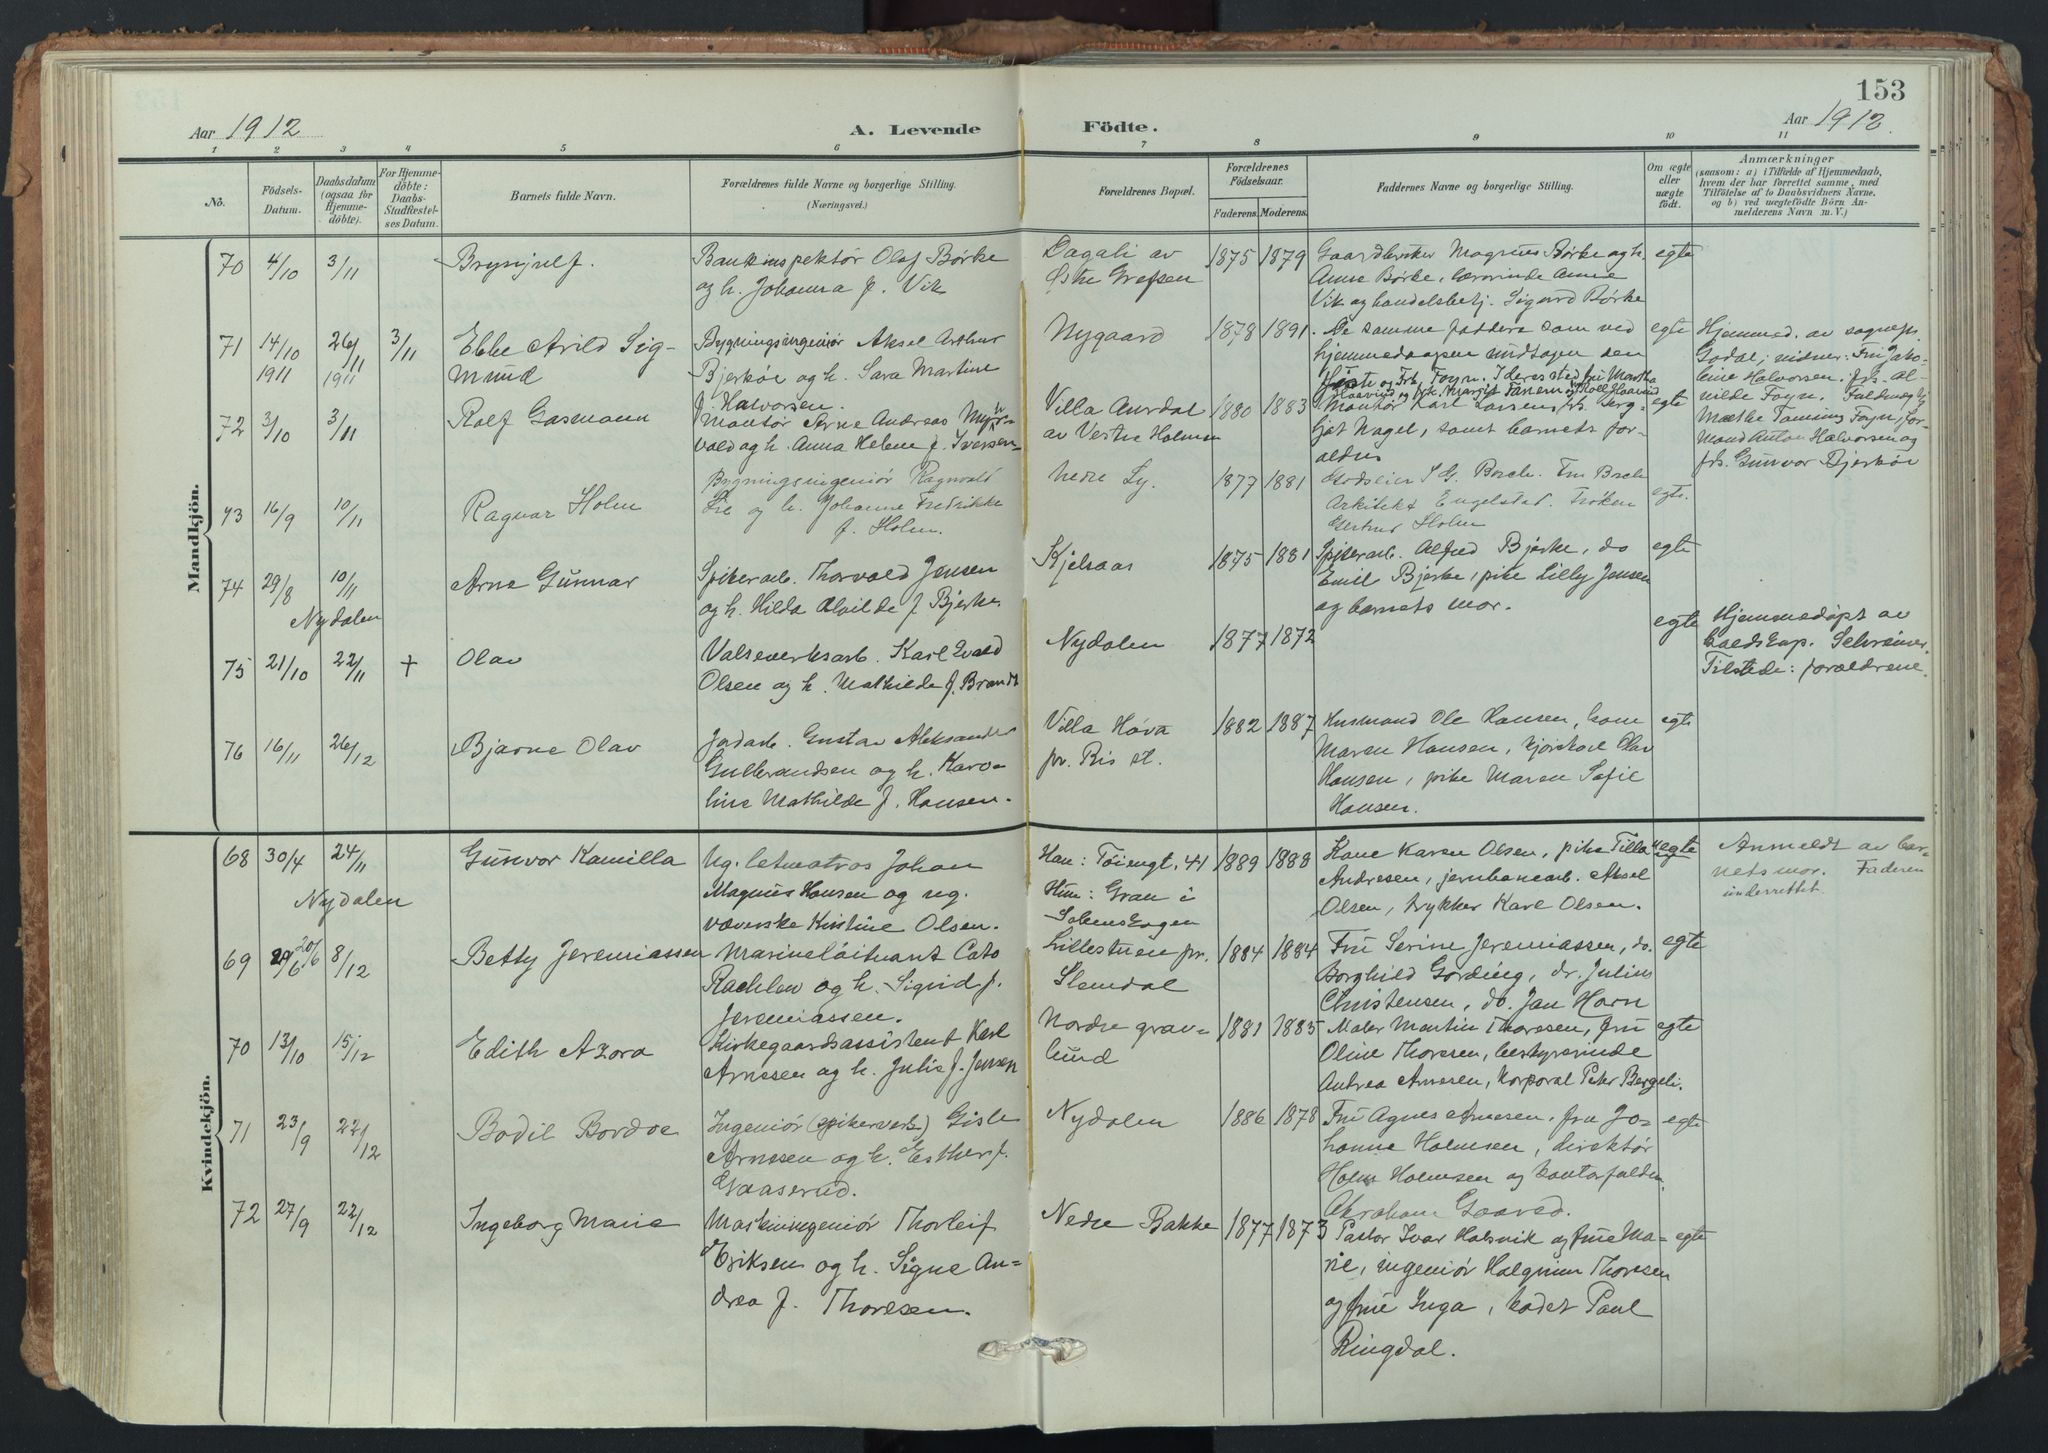 153
Aar 1912
A. Levende Födte.
Aar 1912.
1 2 3 4 5 6 7 8 9 10 11
No.
Födsels-
Datum.
Daabsdatum
(ogsaa for
Hjemme-
döbte).
For Hjemme-
döbte:
Daabs-
Stadfæstel-
ses Datum.
Barnets fulde Navn.
Forældrenes fulde Navne og borgerlige Stilling.
(Næringsvei.)
Forældrenes Bopæl.
Forældrenes
Födselsaar.
Faderens. Moderens.
Faddernes Navne og borgerlige Stilling.
Om ægte
eller
uægte
födt.
Anmærkninger
(saasom: a) i Tilfælde af Hjemmedaab,
hvem der har forrettet samme, med
Tilföielse af to Daabsvidners Navne.
og b) ved uægtefödte Börn An-
melderens Navn m. V.)
Mandkjön.
70 4/10 3/11 Brynjulf.
Bankinspektör Olaf Börke
og h. Johanna f. Vik
Dagali av
Östre Grefsen
1875 1879
Gaardbruker Magnus Börke og h.
Anne Börke, lærerinde Anne
Vik og handelsbetj. Sigurd Börke
egte
71 14/10 1911 26/11 1911 3/11 Ebbe Arild Sig-
mund
Bygningsingeniör Aksel Arthur
Bjerköe og h. Sara Martine
f. Halvorsen.
Nygaard
1878 1891.
De samme faddere som ved
hjemmedaapen undtagen den
förste og Frk. Foyn. I deres sted fru Martha
egte
Hjemmed. av sognepr.
Godal; vidner: Fru Jako-
bine Halvorsen. frk. Al-
vilde Foyn. Fuldmegt.
Foyn, for-
mand Anton Halvorsen og
frk. Gunvor Bjerköe
72 3/10 3/11 Rolf Gasmann
Montör Arne Andreas Myhr-
vold og h. Anna Helene f. Iversen
Villa Aurdal
av Vestre Holmen
1880 1883
Montör Karl Larsen, frk. Berg-
ljot Nagel, samt barnets for-
ældre
egte
73 16/9 10/11 Ragnar Holm
Bygningsingeniör Ragnvald
Lie og h. Johanne Fredrikke
f. Holm.
Nedre Ly.
1877 1881
Godseier S G. Borch. Fru Borch
Arkitekt Engelstad. Fröken
Gertrud Holm
egte.
74 29/8 10/11 Arne Gunnar
Nydalen
Spikerarb. Thorvald Jensen
og h. Hilda Alvilde f Bjerke
Kjelsaas
1875 1881
Spikerarb. Alfred Bjerke, do
Emil Bjerke, pike Lilly Jensen
og barnets mor.
egte
75 21/10 22/11 + Olav
Valseverksarb. Karl Evald
Olsen og h. Mathilde f. Brandt
Nydalen
1877 1872
egte
Hjemmedöpt av
Schreiner.
Tilstede: forældrene.
76 16/11 26/12 Bjarne Olav
Jordarb. Gustav Aleksander
Gulbrandsen og h. Karo-
line Mathilde f. Hansen.
Villa Höva
pr. Ris st.
1882 1887
Husmand Ole Hansen, kone
Maren Hansen, kjörekarl Olav
Hansen, pike Maren Sofie
Hansen.
egte
Kvindekjön.
68 30/4 24/11 Gunvor Kamilla
Nydalen
Ug. letmatros Johan
Magnus Hansen og ug.
væverske Kristine Olsen.
Han: Töiengt. 41
Hun: Gran i
1889 1888
Kone Karen Olsen, pike Tilla
Andresen, jernbanearb. Aksel
Olsen, trykker Karl Olsen.
uegte
Anmeldt av bar-
nets mor. Faderen
underrettet.
69 20/6 8/12 Betty Jeremiassen
Marinelöitnant Cato
Rachlew og h. Sigrid f.
Jeremiassen.
Lillestuen pr.
Slemdal
1884 1884
Fru Serine Jeremiassen, do.
Borghild Gording, dr. Julius
Christensen, do. Jan Horn
egte
70 13/10 15/12 Edith Azora
Kirkegaardsassistent Karl
Arnesen og h. Julie f. Jensen
Nordre grav-
lund
1881 1885
Maler Martin Thoresen, fru
Oline Thoresen, bestyrerinde
Andrea Arnesen, korporal Peter Bergeli.
egte
71 23/9 22/12 Bodil Bordoe
Ingeniör (spikerverk) Gisle
Arnesen og h. Esther f.
Gaaserud.
Nydalen
1886 1878
Fru Agnes Arnesen, fru Jo-
hanne Holmsen, direktör
Holm Holmsen og kontorfuldm.
Abraham
egte
72 27/9 22/12 Ingeborg Marie
Maskiningeniör Thorleif
Eriksen og h. Signe An-
drea f. Thoresen.
Nedre Bakke
1877 1873
Pastor Ivar Halsvik og frue Ma-
rie, ingeniör Halgrim Thoresen
og frue Inga, kadet Paul
Ringdal.
egte